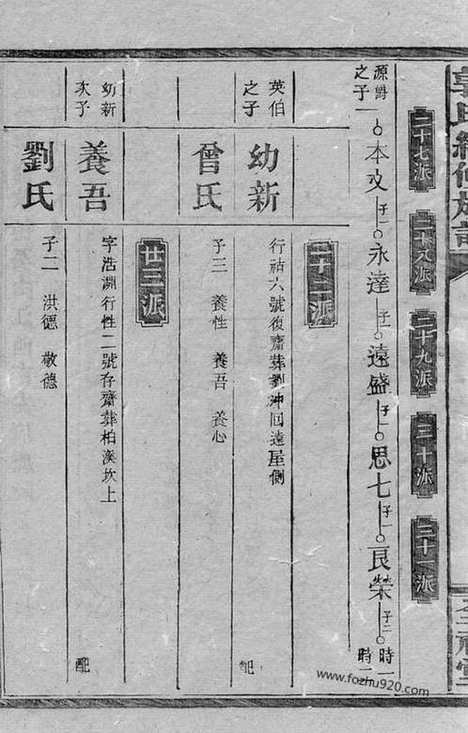 氏續修族譜
二十七派
二十八派
二十九派
三十派
三十一派
源爵之子
本文 子一 永達 子二 遠盛 子一 思七 子一 良榮 子二 時一 時二
二十二派
英伯之子
幼新
行祜六號復齋葬劉冲回遠屋側
配
曾氏
子三 養性 養吾 養心
廿三派
幼新次子
養吾
字浩淵行性二號存齋葬柏溪坎上
配
劉氏
子二 洪德 敬德
www.fozhu920.com